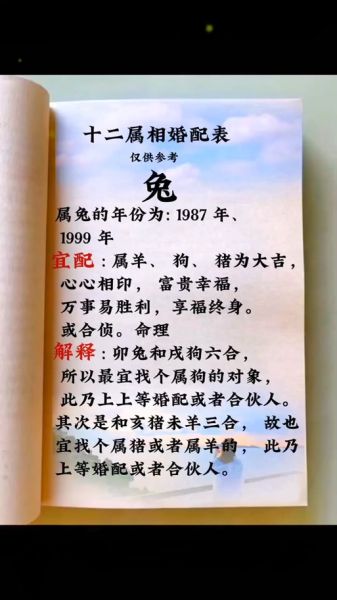 十二属相婚配表
仅供参考
兔
属兔的年份为: 1987 年、
1999 年
宜配：属羊、 狗、 猪为大吉，
心心相印， 富贵幸福，
万事易胜利，享福终身。
或合侦。命理
解释：卯兔和戌狗六合，
所以最宜找个属狗的对象，
此乃上上等婚配或者合伙人。
其次是和亥猪未羊三合， 故也
宜找个属猪或者属羊的， 此乃
上等婚配或者合伙人。